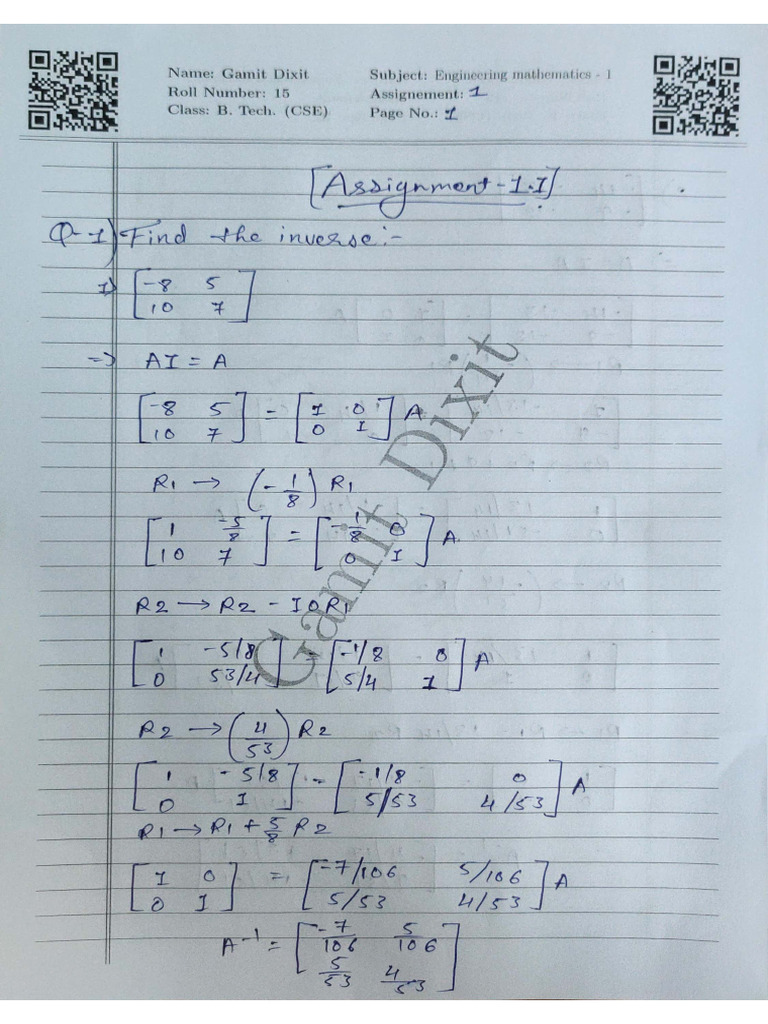 Name: Gamit Dixit
Roll Number: 15
Class: B. Tech. (CSE)
Subject: Engineering mathematics - 1
Assignement: 1
Page No.: 1
[Assignment-1.I]
Q-1) Find the inverse:-
I) [-8 5
10 7]
=> AI = A
[-8 5
10 7] = [1 0
0 I] A
R1 → (-1/8) R1
[1 -5/8
10 7] = [-1/8 0
0 I] A.
R2 → R2 - I0R1
[1 -5/8
0 53/4] = [-1/8 0
5/4 1] A
R2 → (4/53) R2
[1 -5/8
0 I] = [-1/8 0
5/53 4/53] A
R1 → R1 + 5/8 R2
[1 0
0 I] = [-7/106 5/106
5/53 4/53] A
A-1 = [-7/106 5/106
5/53 4/53]
Gamit Dixit